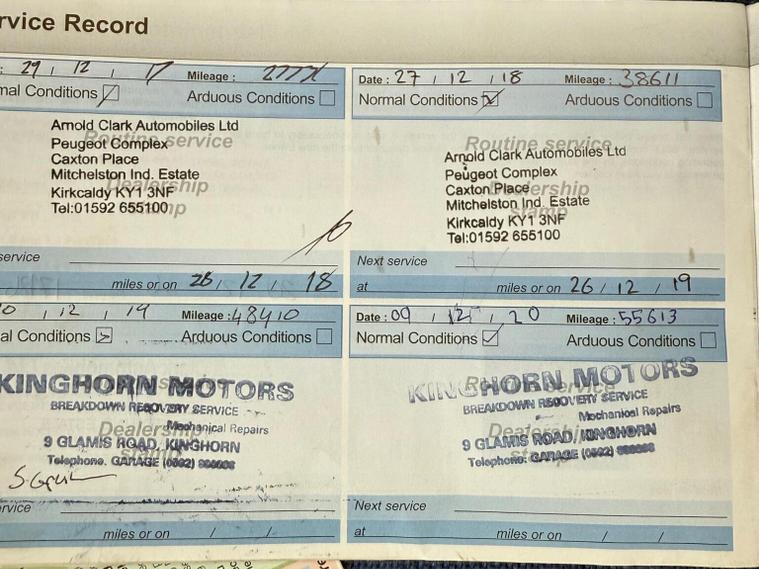 rvice Record
: 29 / 12 / 17 Mileage :
mal Conditions Arduous Conditions
Routine service
Dealership
stamp
Arnold Clark Automobiles Ltd
Peugeot Complex
Caxton Place
Mitchelston Ind. Estate
Kirkcaldy KY1 3NF
Tel:01592 655100
service
miles or on 26 / 12 / 18
Date : 27 / 12 / 18 Mileage : 38611
Normal Conditions Arduous Conditions
Routine service
Dealership
stamp
Arnold Clark Automobiles Ltd
Peugeot Complex
Caxton Place
Mitchelston Ind. Estate
Kirkcaldy KY1 3NF
Tel:01592 655100
Next service
at miles or on 26 / 12 / 19
0 / 12 / 19 Mileage : 48410
al Conditions Arduous Conditions
Dealership
stamp
KINGHORN MOTORS
BREAKDOWN RECOVERY SERVICE
Mechanical Repairs
9 GLAMIS ROAD, KINGHORN
Telephone. GARAGE
rvice
miles or on / /
Date : 09 / 12 / 20 Mileage : 55613
Normal Conditions Arduous Conditions
Routine service
Dealership
stamp
KINGHORN MOTORS
BREAKDOWN RECOVERY SERVICE
Mechanical Repairs
9 GLAMIS ROAD, KINGHORN
Telephone. GARAGE
Next service
at miles or on / /